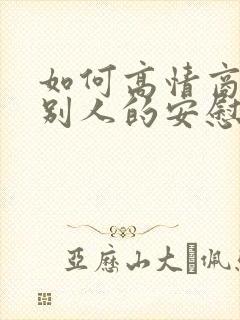 如何高情商
别人的安慰
亚历山大佩